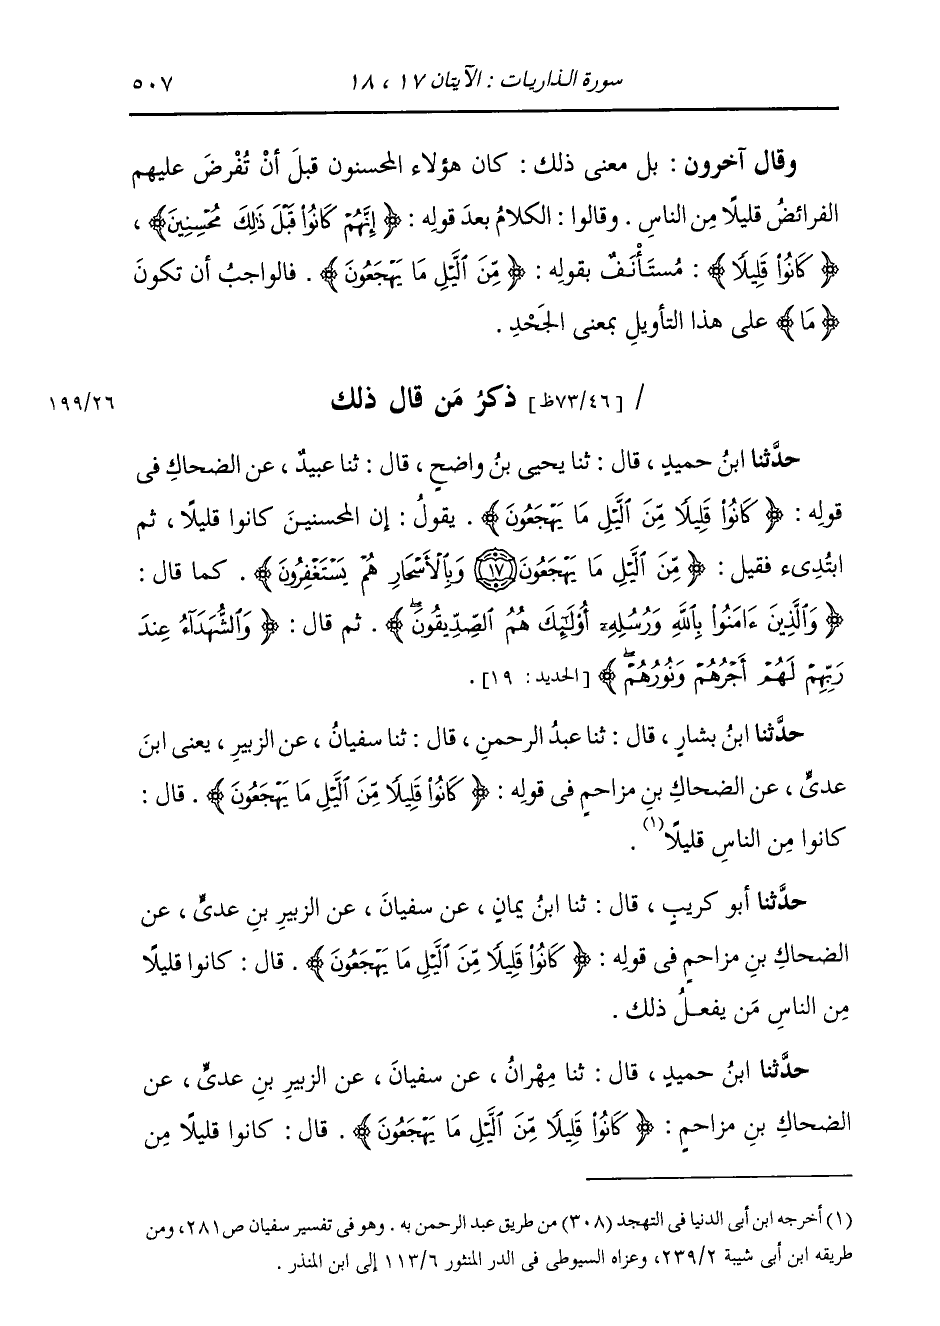 سورة الذاريات : الآيتان ١٧ ، ١٨ ٥٠٧
وقال آخرون : بل معنى ذلك : كان هؤلاء المحسنون قبلَ أنْ تُفْرضَ عليهم
الفرائضُ قليلًا مِن الناسِ . وقالوا : الكلامُ بعدَ قولِه : ﴿ إِنَّهُمْ كَانُوا۟ قَبْلَ ذَٰلِكَ مُحْسِنِينَ﴾ ،
﴿ كَانُوا۟ قَلِيلًا ﴾ : مُستَأْنَفٌ بقولِه : ﴿ مِّنَ ٱلَّيْلِ مَا يَهْجَعُونَ ﴾ . فالواجبُ أن تكونَ
﴿ مَا ﴾ على هذا التأويلِ بمعنى الجَحْدِ .
/ [٧٣/٤٦ظ] ذكرُ مَن قال ذلك ١٩٩/٢٦
حدَّثنا ابنُ حميدٍ ، قال : ثنا يحيى بنُ واضحٍ ، قال : ثنا عبيدٌ ، عن الضحاكِ فى
قولِه : ﴿ كَانُوا۟ قَلِيلًا مِّنَ ٱلَّيْلِ مَا يَهْجَعُونَ ﴾ . يقولُ : إن المحسنينَ كانوا قليلًا ، ثم
ابتُدِىء فقيل : ﴿ مِّنَ ٱلَّيْلِ مَا يَهْجَعُونَ ١٧ وَبِٱلْأَسْحَارِ هُمْ يَسْتَغْفِرُونَ ﴾ . كما قال :
﴿ وَٱلَّذِينَ ءَامَنُوا۟ بِٱللَّهِ وَرُسُلِهِۦٓ أُو۟لَٰٓئِكَ هُمُ ٱلصِّدِّيقُونَۖ ﴾ . ثم قال : ﴿ وَٱلشُّهَدَآءُ عِندَ
رَبِّهِمْ لَهُمْ أَجْرُهُمْ وَنُورُهُمْۖ ﴾ [الحديد : ١٩] .
حدَّثنا ابنُ بشارٍ ، قال : ثنا عبدُ الرحمنِ ، قال : ثنا سفيانُ ، عن الزبيرِ ، يعنى ابنَ
عدىٍّ ، عن الضحاكِ بنِ مزاحمٍ فى قولِه : ﴿ كَانُوا۟ قَلِيلًا مِّنَ ٱلَّيْلِ مَا يَهْجَعُونَ ﴾ . قال :
كانوا مِن الناسِ قليلًا(١) .
حدَّثنا أبو كريبٍ ، قال : ثنا ابنُ يمانٍ ، عن سفيانَ ، عن الزبيرِ بنِ عدىٍّ ، عن
الضحاكِ بنِ مزاحمٍ فى قولِه : ﴿ كَانُوا۟ قَلِيلًا مِّنَ ٱلَّيْلِ مَا يَهْجَعُونَ ﴾ . قال : كانوا قليلًا
مِن الناسِ مَن يفعلُ ذلك .
حدَّثنا ابنُ حميدٍ ، قال : ثنا مِهْرانُ ، عن سفيانَ ، عن الزبيرِ بنِ عدىٍّ ، عن
الضحاكِ بنِ مزاحمٍ : ﴿ كَانُوا۟ قَلِيلًا مِّنَ ٱلَّيْلِ مَا يَهْجَعُونَ ﴾ . قال : كانوا قليلًا مِن
(١) أخرجه ابن أبى الدنيا فى التهجد (٣٠٨) من طريق عبد الرحمن به . وهو فى تفسير سفيان ص٢٨١، ومن
طريقه ابن أبى شيبة ٢٣٩/٢، وعزاه السيوطى فى الدر المنثور ١١٣/٦ إلى ابن المنذر .